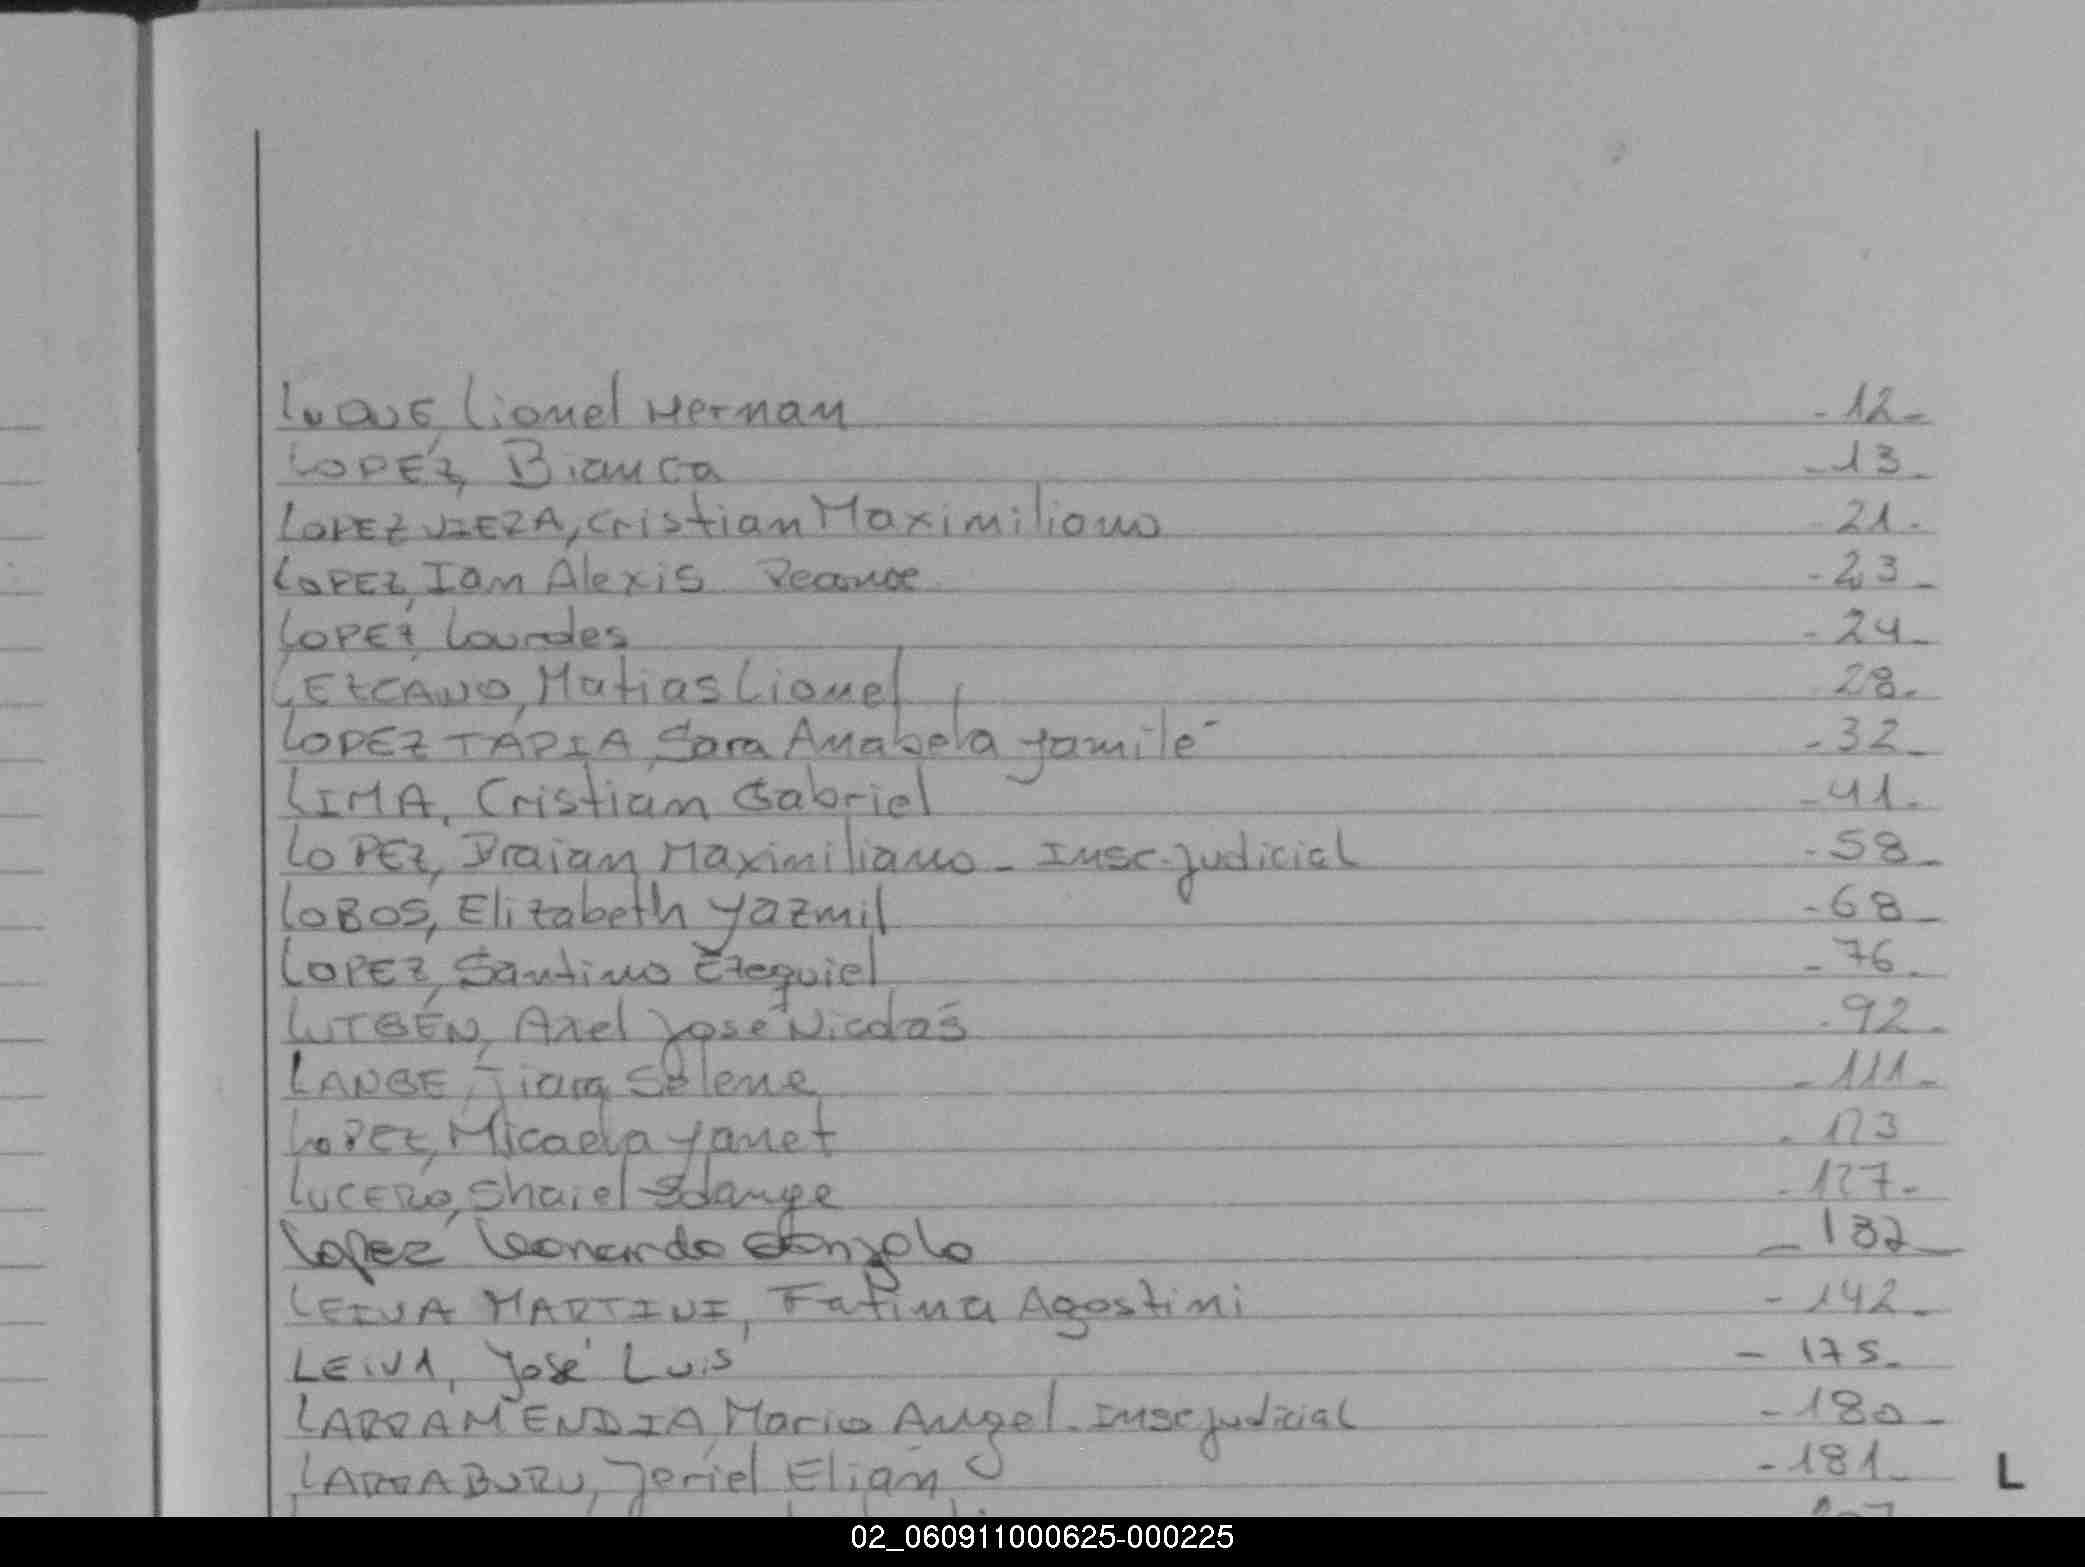 LUQUE, Lionel Hernan -12-
LOPEZ, Bianca -13-
LOPEZ VIEZA, Cristian Maximiliano 21-
LOPEZ, Ian Alexis -23-
LOPEZ, Lourdes -24-
LEZCANO, Matias Lionel 28-
LOPEZ TAPIA, Sara Anabela Yamilé -32-
LIMA, Cristian Gabriel -41-
LOPEZ, Braian Maximiliano - Insc. judicial -58-
LOBOS, Elizabeth Yazmil -68-
LOPEZ, Santino Ezequiel -76-
LUTBÉN, Axel José Nicolás -92-
LANGE, Tiara Selene -111-
LOPEZ, Micaela Yanet - 123
LUCERO, Shaiel Solange -127-
Lopez Leonardo Gonzalo - 132 -
LEIVA MARTINI, Fatima Agostini -142-
LEIVA, José Luis - 175-
LARRAMENDIA, Mario Angel - Insc judicial -180-
LARRABURU, Jeriel Elian -181-
L
02_060911000625-000225